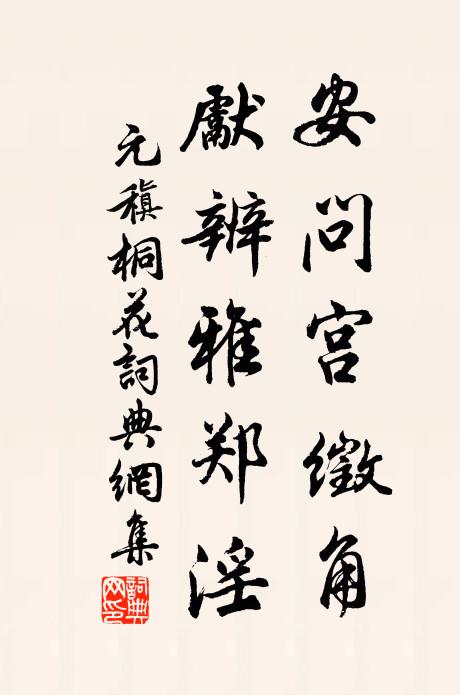 安问宫徵角
獻辨雅郑淫
元稹桐花詞典網集
詞典
网印